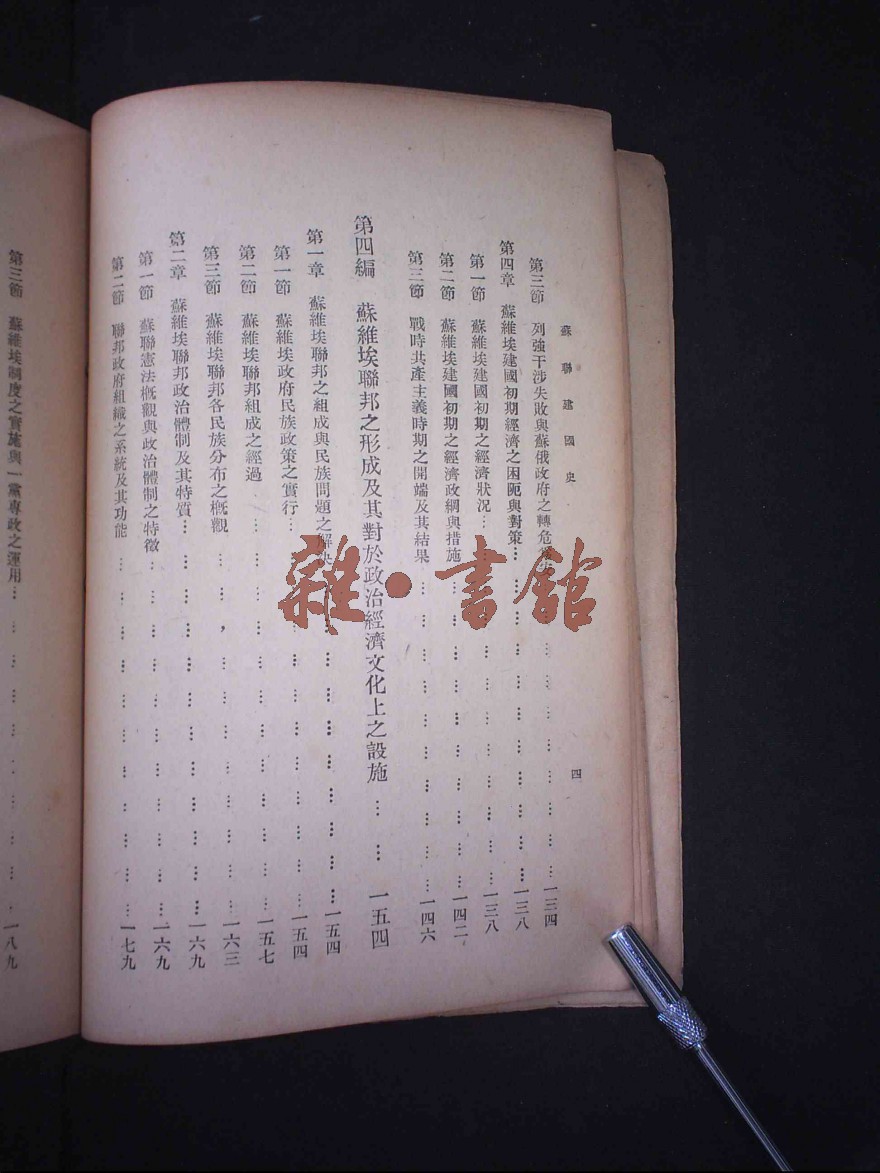 蘇聯建國史
四
第三節 列強干涉失敗與蘇俄政府之轉危 …………………一三四
第四章 蘇維埃建國初期經濟之困阨與對策…………………一三八
第一節 蘇維埃建國初期之經濟狀況…………………一三八
第二節 蘇維埃建國初期之經濟政綱與措施…………………一四二
第三節 戰時共產主義時期之開端及其結果…………………一四六
第四編 蘇維埃聯邦之形成及其對於政治經濟文化上之設施……一五四
第一章 蘇維埃聯邦之組成與民族問題之解決…………………一五四
第一節 蘇維埃政府民族政策之實行…………………一五四
第二節 蘇維埃聯邦組成之經過…………………一五七
第三節 蘇維埃聯邦各民族分布之概觀…………………一六三
第二章 蘇維埃聯邦政治體制及其特質…………………一六九
第一節 蘇聯憲法概觀與政治體制之特徵…………………一六九
第二節 聯邦政府組織之系統及其功能…………………一七九
第三節 蘇維埃制度之實施與一黨專政之運用…………………一八九
雜·書館